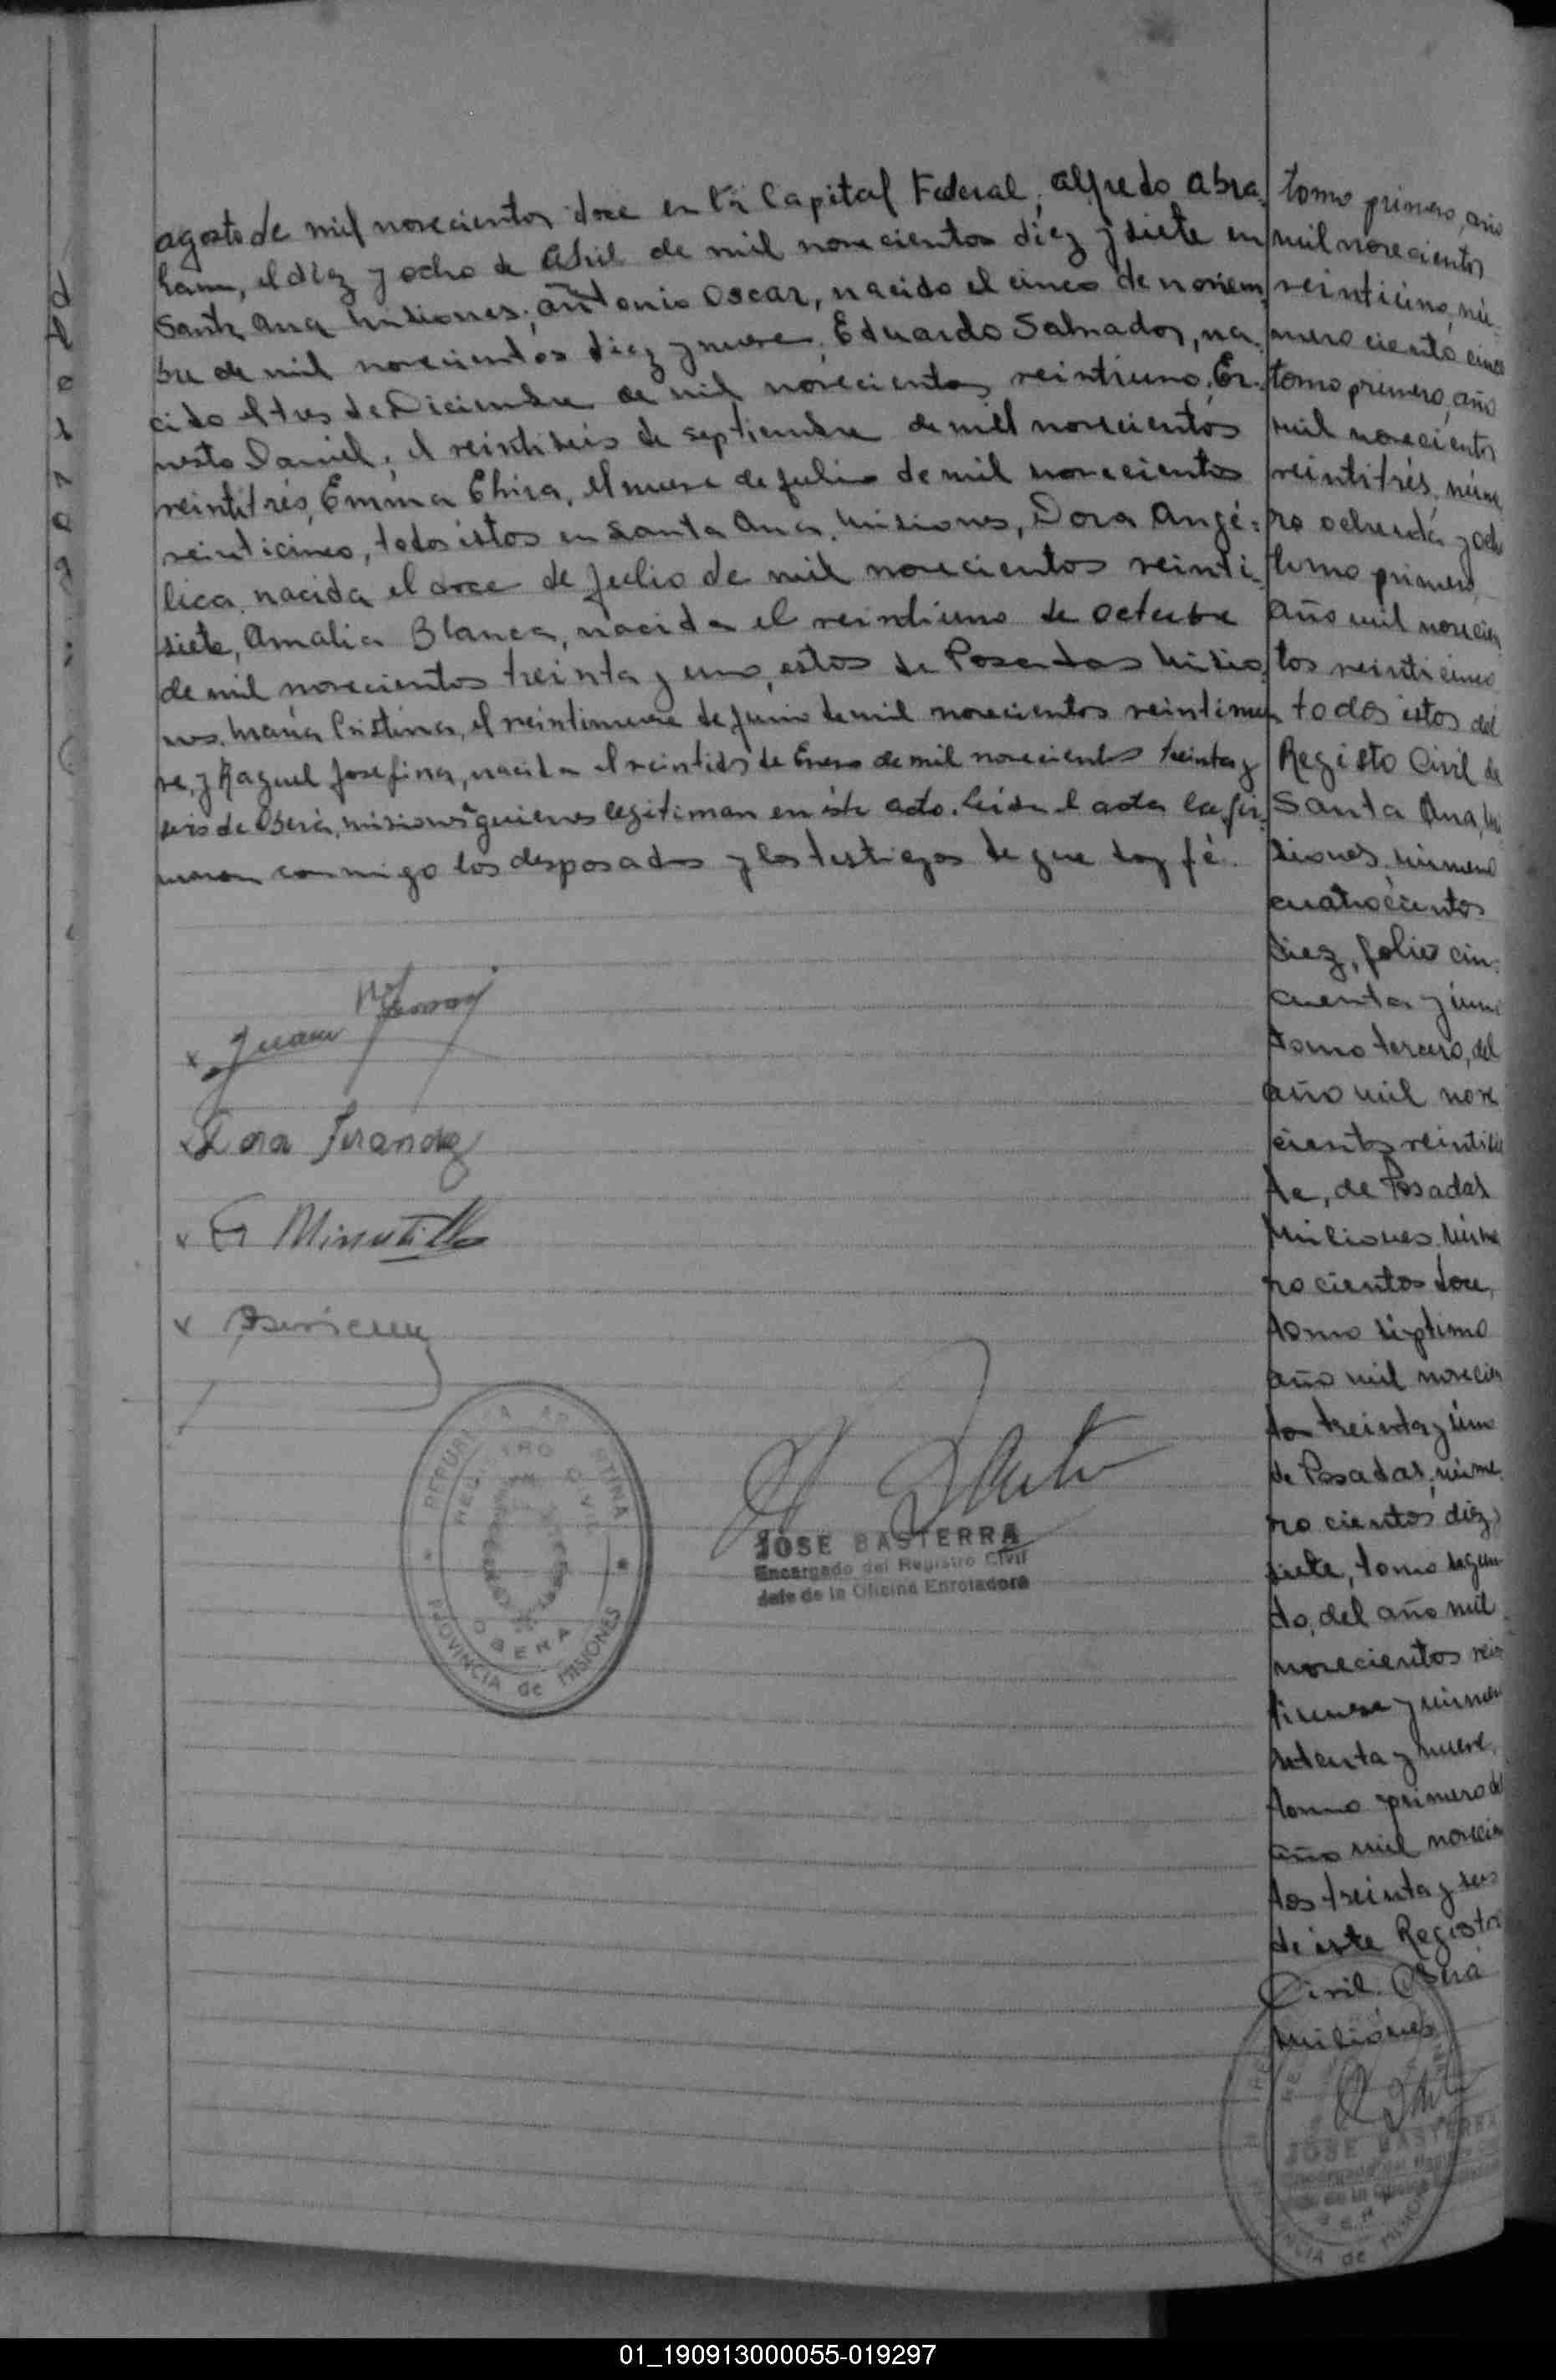 agosto de mil novecientos doce en la Capital Federal; Alfredo Abra-
ham, el diez y ocho de Abril de mil novecientos diez y siete en
Santa Ana Misiones; Antonio Oscar, nacido el cinco de noviem-
bre de mil novecientos diez y nueve; Eduardo Salvador, na-
cido el tres de Diciembre de mil novecientos veintiuno; Er-
nesto Daniel, el veintiseis de septiembre de mil novecientos
veintitrés, Emma Elvira, el nueve de julio de mil novecientos
veinticinco, todos éstos en Santa Ana, Misiones, Dora Angé-
lica, nacida el doce de Julio de mil novecientos veinti-
siete, Amalia Blanca, nacida el veintiuno de octubre
de mil novecientos treinta y uno, estos de Posadas Misio-
nes. María Cristina, el veintinueve de junio de mil novecientos veintinue-
ve, y Raquel Josefina, nacida el veintidos de Enero de mil novecientos treinta y
seis de Oberá, misiones quienes legitiman en éste acto. Leida el acta la fir-
maron conmigo los desposados y los testigos de que doy fé.
Juan
Dora
G Minutillo
REPUBLICA ARGENTINA
REGISTRO CIVIL
OBERA
PROVINCIA de MISIONES
JOSE BASTERRA
Encargado del Registro Civil
Jefe de la Oficina Enroladora
tomo primero, año
mil novecientos
veinticino, nú-
mero ciento cinco
tomo primero, año
mil novecientos
veintitrés, núme
ro ochenta y ocho
tomo primero,
año mil novecien
tos veinticinco
todos éstos del
Registo Civil de
Santa Ana, Mi
siones, número
cuatrocientos
diez, folio cin-
cuenta y uno
tomo tercero, del
año mil nove
cientos veintisie
te, de Posadas
Misiones, núme
ro cientos doce,
tomo séptimo
año mil novecien
tos treinta y uno
de Posadas, núme
ro cientos diez y
siete, tomo segun
do, del año mil
novecientos vein
tinueve y número
setenta y nueve,
tomo primero del
año mil novecien
tos treinta y seis
de éste Registro
Civil. Oberá
Misiones
JOSE BASTERRA
01_190913000055-019297